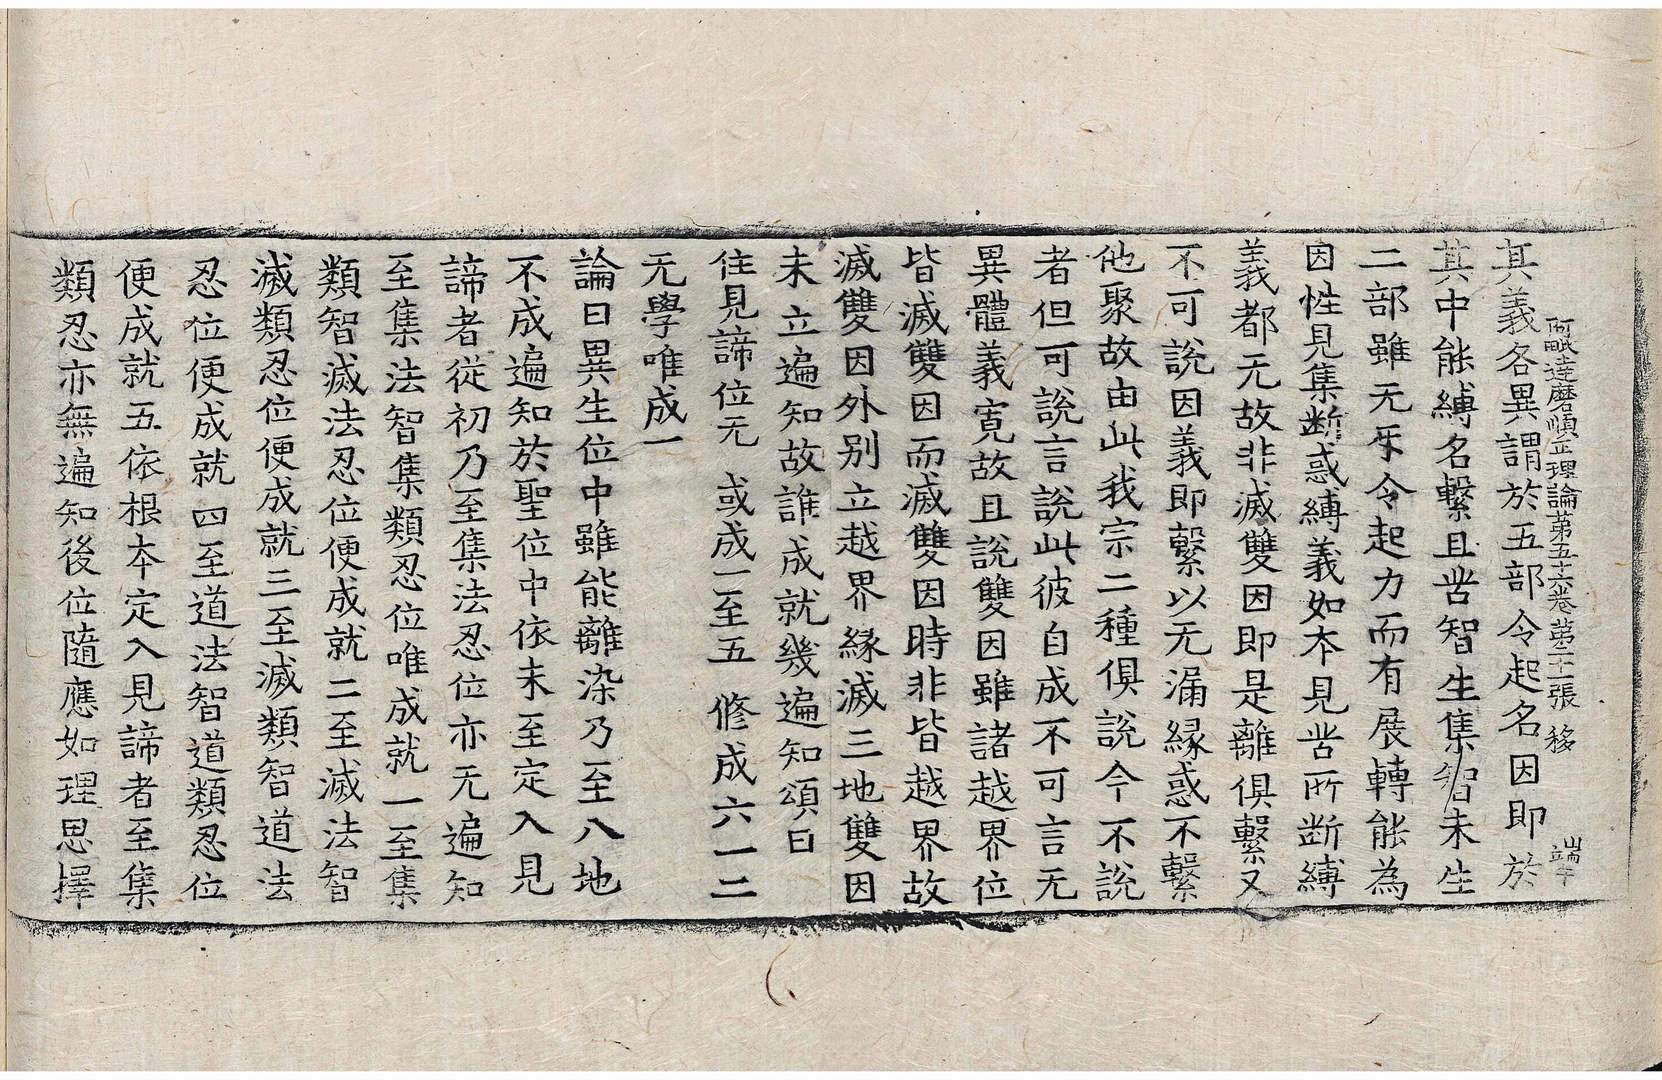 阿毗達磨順正理論第五十六卷 第二十一張 移
其義各異謂於五部令起名因即於
其中能縛名繫且苦智生集智未生
二部雖无互令起力而有展轉能為
因性見集断惑縛義如本見苦所断縛
義都无故非滅雙因即是離俱繫又
不可說因義即繫以无漏緣惑不繫
他聚故由此我宗二種俱說今不說
者但可說言說此彼自成不可言无
異體義寬故且說雙因雖諸越界位
皆滅雙因而滅雙因時非皆越界故
滅雙因外别立越界緣滅三地雙因
未立遍知故誰成就幾遍知頌曰
住見諦位无 或成一至五 修成六一二
无學唯成二
論曰異生位中雖能離染乃至八地
不成遍知於聖位中依未至定入見
諦者從初乃至集法忍位亦无遍知
至集法智集類忍位唯成就一至集
類智滅法忍位便成就二至滅法智
滅類忍位便成就三至滅類智道法
忍位便成就四至道法智道類忍位
便成就五依根本定入見諦者至集
類忍亦無遍知後位隨應如理思擇